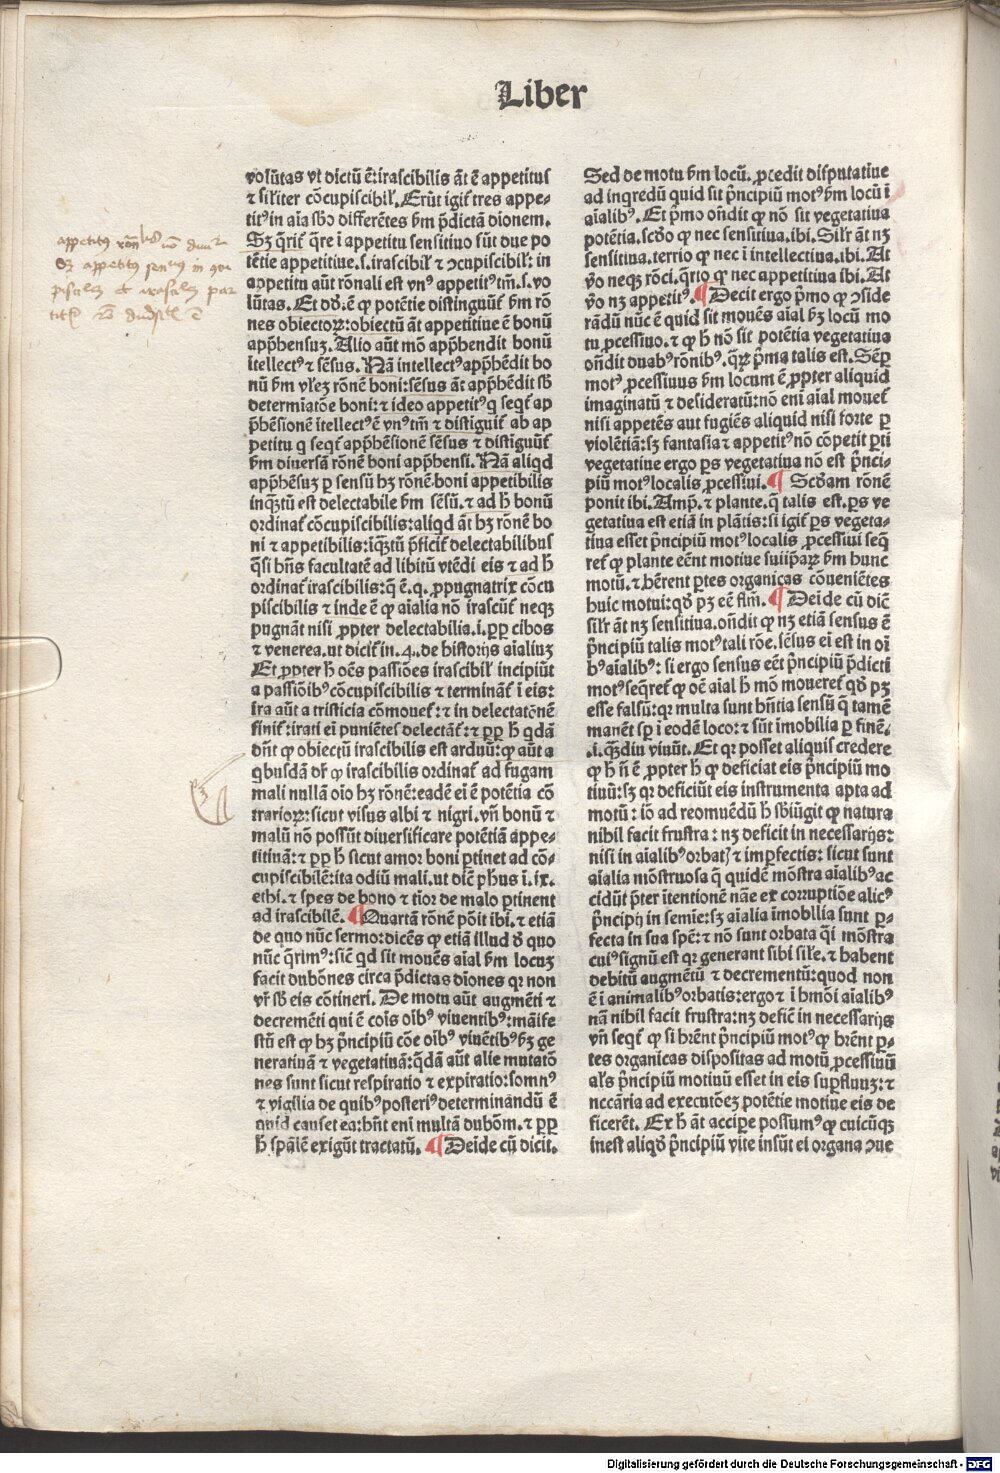 Liber
volūtas vt dictū ē: irascibilis āt ē appetitus
⁊ sīliter cōcupiscibil̄. Erūt igit̄ tres appe⸗
titꝰ in aīa sbō differētes s̄m p̄dictā dionem.
Sꝫ q̄rit̄ q̄re ī appetitu sensitiuo sūt due po
tētie appetitiue. s. irascibil̄ ⁊ ꝯcupiscibil̄: in
appetitu aūt rōnali est vnꝰ appetitꝰ tm̄. s. vo
lūtas. Et dō. ē ꝙ potētie distinguūt̄ s̄m rō
nes obiectoꝝ: obiectū āt appetitiue ē bonū
app̄hensuꝫ. Alio aūt mō app̄hendit bonū
ītellectꝰ ⁊ sēsus. Nā intellectꝰ app̄hēdit bo
nū s̄m vl̄eꝫ rōnē boni: sēsus āt app̄hēdit sb̄
determīatōe boni: ⁊ ideo appetitꝰ q seqt̄ ap
p̄hēsionē ītellectꝰ ē vnꝰ tm̄ ⁊ distiguit̄ ab ap
petitu q seqt̄ app̄hēsionē sēsus ⁊ distiguūt̄
s̄m diuersā rōnē boni app̄hensi. Nā aliqd
app̄hēsuꝫ ꝑ sensū hꝫ rōnē boni appetibilis
inqꝫtū est delectabile s̄m sēsū. ⁊ ad h̄ bonū
ordinat̄ cōcupiscibilis: aliqd āt hꝫ rōnē bo
ni ⁊ appetibilis: iqꝫtū p̄ficit̄ delectabilibus
q̄si hn̄s facultatē ad libitū vtēdi eis ⁊ ad h̄
ordinat̄ irascibilis: q̄ ē. q. ꝓpugnatrix cōcu
piscibilis ⁊ inde ē ꝙ aīalia nō irascūt̄ neqꝫ
pugnāt nisi ꝓpter delectabilia. i. ꝓꝑ cibos
⁊ venerea. ut dicit̄ in. 4. de historijs aīaliuꝫ
Et ꝓpter h̄ oēs passiōes irascibil̄ incipiūt
a passiōibꝰ cōcupiscibilis ⁊ termināt̄ ī eis:
ira aūt a tristicia cōmouet̄: ⁊ in delectatōnē
finit̄: irati eī puniētes delectāt̄: ⁊ ꝓꝑ h̄ qdā
dn̄t ꝙ obiectū irascibilis est arduū: ꝙ aūt a
qbusdā dr̄ ꝙ irascibilis ordinat̄ ad fugam
mali nullā oīo hꝫ rōnē: eadē eī ē potētia cō
trarioꝝ: sicut visus albi ⁊ nigri. vn̄ bonū ⁊
malū nō possūt diuersificare potētiā appe⸗
titiuā: ⁊ ꝓꝑ h̄ sicut amor boni ꝑtinet ad cō⸗
cupiscibilē: ita odiū mali. ut dic̄ ph̄us ī. ix.
ethi. ⁊ spes de bono ⁊ tīor de malo ꝑtinent
ad irascibilē. ¶ Quartā rōnē pōit ibi. ⁊ etiā
de quo nūc sermo: dicēs ꝙ etiā illud d̄ quo
nūc q̄rimꝰ: sic̄ qd sit mouēs aīal s̄m locuꝫ
facit dubōnes circa p̄dictas dīones qꝛ non
vr̄ sb̄ eis cōtineri. De motu aūt augmēti ⁊
decremēti qui ē coīs oībꝰ viuentibꝰ: māife
stū est ꝙ hꝫ p̄ncipiū cōe oībꝰ viuētibꝰ sꝫ ge
neratiuā ⁊ vegetatiuā: q̄dā aūt alie mutatō
nes sunt sicut respiratio ⁊ expiratio: somnꝰ
⁊ vigilia de quibꝰ posteriꝰ determinandū ē
quid causet ea: hn̄t eni multā dubōm. ⁊ ꝓꝑ
h̄ sp̄alē exigūt tractatū. ¶ Deīde cū dicit.
Sed de motu s̄m locū. ꝓcedit disputatiue
ad inqredū quid sit p̄ncipiū motꝰ s̄m locū ī
aīalibꝰ. Et p̄mo on̄dit ꝙ nō sit vegetatiua
potētia. scd̄o ꝙ nec sensitiua. ibi. Sil̄r āt nꝫ
sensitiua. terrio ꝙ nec ī intellectiua. ibi. At
v̄o neqꝫ rōci. q̄rto ꝙ nec appetitiua ibi. At
v̄o nꝫ appetitꝰ. ¶ Decit ergo p̄mo ꝙ ꝯside
rādū nūc ē quid sit mouēs aīal s̄ꝫ locū mo
tu ꝓcessiuo. ⁊ ꝙ h̄ nō sit potētia vegetatiua
on̄dit duabꝰ rōnibꝰ. q̄ꝝ p̄ma talis est. Sēꝑ
motꝰ ꝓcessiuus s̄m locum ē ꝓpter aliquid
imaginatū ⁊ desideratū: nō enī aīal mouet̄
nisi appetēs aut fugiēs aliquid nisi forte ꝑ
violētiā: sꝫ fantasia ⁊ appetitꝰ nō cōpetit ꝑti
vegetatiue ergo ꝑs vegetatiua nō est p̄nci⸗
piū motꝰ localis ꝓcessiui. ¶ Scd̄am rōnē
ponit ibi. Amp̄. ⁊ plante. q̄ talis est. ꝑs ve
getatiua est etiā in plātis: si igit̄ ꝑs vegeta⸗
tiua esset p̄ncipiū motꝰ localis ꝓcessiui seq̄
ret̄ ꝙ plante eēnt motiue suiip̄aꝝ s̄m hunc
motū. ⁊ hērent ꝑtes organicas cōueniētes
huic motui: qd̄ pꝫ eē flm̄. ¶ Deīde cū dic̄
sil̄r āt nꝫ sensitiua. on̄dit ꝙ nꝫ etiā sensus ē
p̄ncipiū talis motꝰ tali rōe. sēsus eī est in oī
bꝰ aīalibꝰ: si ergo sensus eēt p̄ncipiū p̄dicti
motꝰ seq̄ret̄ ꝙ oē aīal h̄ mō moueret̄ qd̄ pꝫ
esse falsū: qꝛ multa sunt hn̄tia sensū q̄ tamē
manēt sꝑ ī eodē loco: ⁊ sūt īmobilia ꝑ finē.
. i. qꝫdiu viuūt. Et qꝛ posset aliquis credere
ꝙ h̄ n̄ ē ꝓpter h̄ ꝙ deficiat eis p̄ncipiū mo
tiuū: sꝫ qꝛ deficiūt eis instrumenta apta ad
motū: iō ad reomuēdū h̄ sb̄iūgit ꝙ natura
nihil facit frustra: nꝫ deficit in necessarijs:
nisi in aīalibꝰ orbat̄ ⁊ imꝑfectis: sicut sunt
aīalia mōstruosa q̄ quidē mōstra aīalibꝰ ac
cidūt p̄ter ītentionē nāe ex corruptiōe alicꝰ
p̄ncipij in semīe: sꝫ aīalia īmobilia sunt ꝑ⸗
fecta in sua spē: ⁊ nō sunt orbata q̄i mōstra
cuiꝰ signū est qꝛ generant sibi sil̄e. ⁊ habent
debitū augmētū ⁊ decrementū: quod non
ē ī animalibꝰ orbatis: ergo ⁊ ī hmōi aīalibꝰ
nā nihil facit frustra: nꝫ defic̄ in necessarijs
vn̄ seqt̄ ꝙ si hr̄ent p̄ncipiū motꝰ ꝙ hr̄ent ꝑ⸗
tes organicas dispositas ad motū ꝓcessiuū
al̄s p̄ncipiū motiuū esset in eis suꝑfluuꝫ: ⁊
nccāria ad executōeꝫ potētie motiue eis de
ficerēt. Ex h̄ āt acciꝑe possumꝰ ꝙ cuicūqꝫ
inest aliqd̄ p̄ncipiū vite insūt ei organa ꝯue
Digitalisierung gefördert durch die Deutsche Forschungsgemeinschaft - DFG